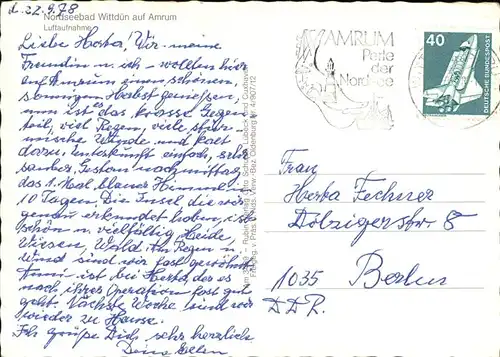 d. 22.9.78
Nordseebad Wittdün auf Amrum
Luftaufnahme
Liebe Herta, Wir – meine
Freundin u. ich – wollten hier
auf Amrum einen schönen,
sonnigen Herbst genießen,
nun ist es das krasse Gegen
teil, viel Regen, viele stür-
mische Winde und kalt
dazu, Unterkunft einfach, sehr
sauber, Gestern nachmittag
das 1. Mal blauer Himmel
10 Tagen. Die Insel die wir
erkundet haben, ist
schön u. vielfältig Heide,
Wiesen, Wald. An Regen u.
Wind sind wir fast gewöhnt
Anni ist bei Herta, der es
nach ihrer Operation fast gut
geht. Nächste Woche sind wir
wieder zu Hause.
Ich grüße Dich sehr herzlich
Deine Helen
AMRUM
Perle
der
Nordsee
40
DEUTSCHE BUNDESPOST
Frau
Herta Fechner
Dolzigerstr. 8
1035 Berlin
DDR.